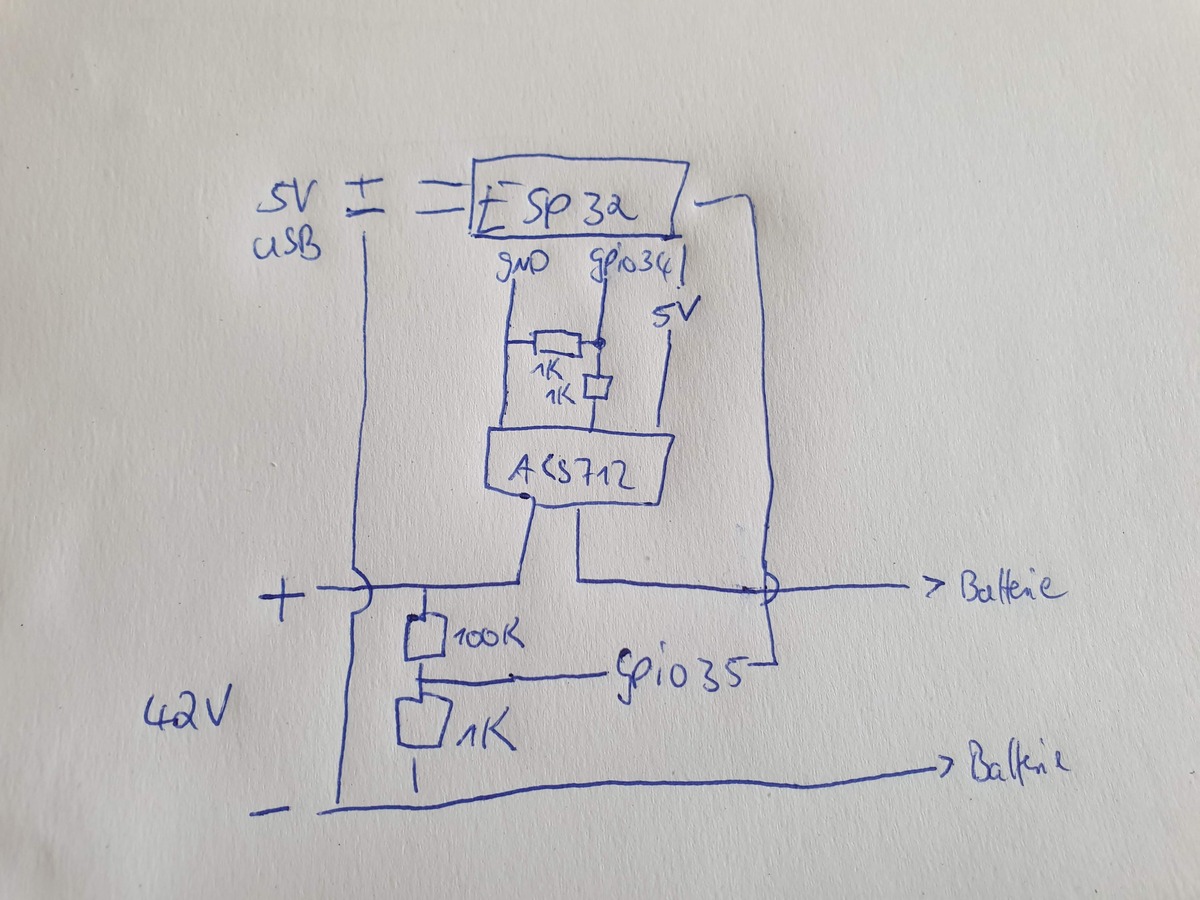 5V + ESP32
USB -
gnd gpio34
5V
1K
1K
ACS712
+ > Batterie
100K
gpio35
42V
1K
- > Batterie